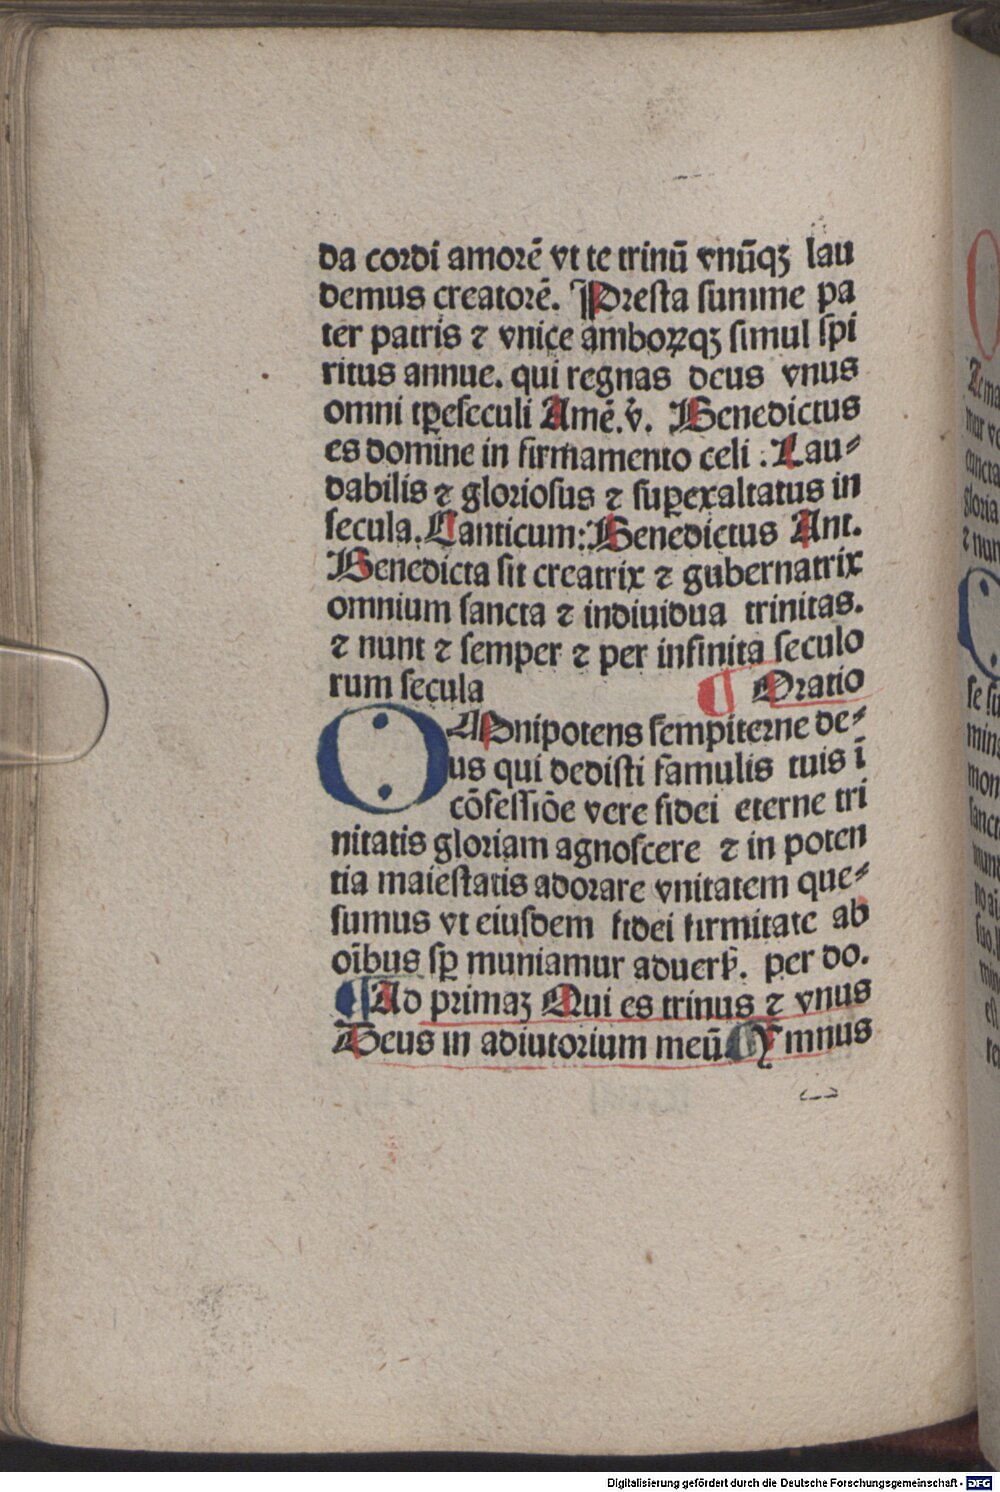 da cordi amorē vt te trinū vnūqꝫ lau
demus creatorē. Presta summe pa
ter patris ⁊ vnice amboꝝqꝫ simul spi
ritus annue. qui regnas deus vnus
omni tꝑeseculi Amē. v̄. Benedictus
es domine in firmamento celi : Lau⸗
dabilis ⁊ gloriosus ⁊ suꝑexaltatus in
secula. Canticum: Benedictus Ant.
Benedicta sit creatrix ⁊ gubernatrix
omnium sancta ⁊ indiuidua trinitas.
⁊ nunt ⁊ semper ⁊ per infinita seculo
rum secula ¶ Oratio
OMnipotens sempiterne de⸗
us qui dedisti famulis tuis ī
cōfessiōe vere fidei eterne tri
nitatis gloriam agnoscere ⁊ in poten
tia maiestatis adorare vnitatem que⸗
sumus vt eiusdem fidei firmitate ab
oībus sꝑ muniamur aduers̄. per do.
¶ Ad primaꝫ Qui es trinus ⁊ vnus
Deus in adiutorium meū Ymnus
Digitalisierung gefördert durch die Deutsche Forschungsgemeinschaft - DFG